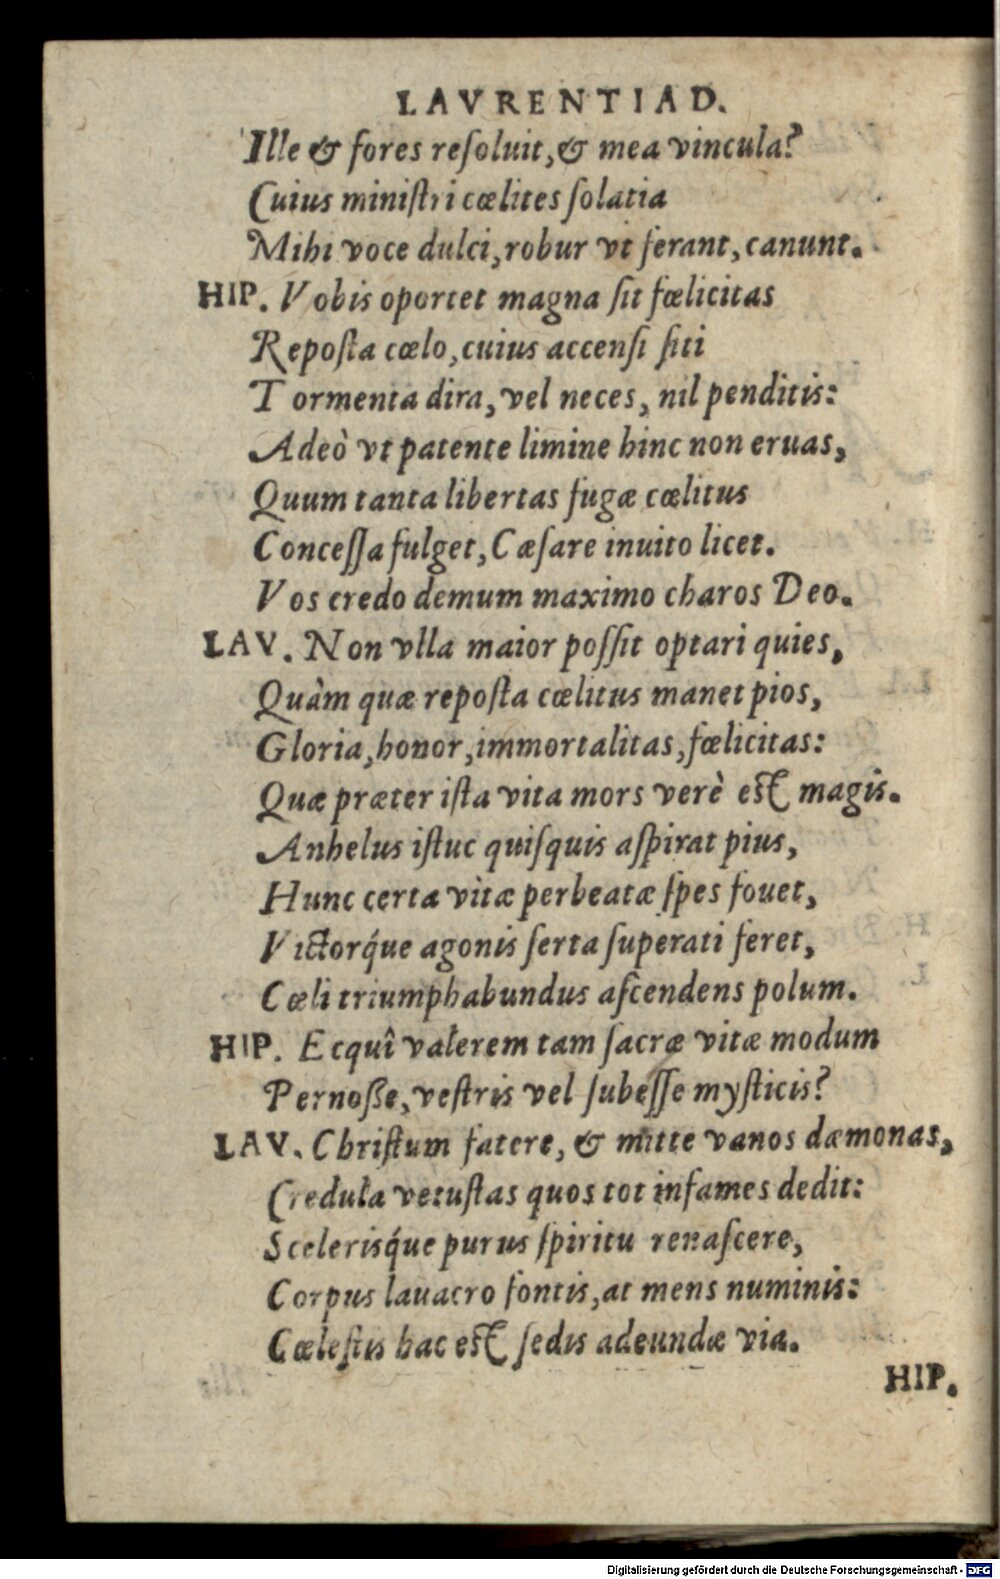 LAVRENTIAD.
Ille & fores reſoluit,& mea vincula?
Cuius miniſtri cœlites ſolatia
Mihi voce dulci,robur vt ferant,canunt.
HIP. Vobis oportet magna ſit fœlicitas
Repoſta cœlo,cuius accenſi ſiti
Tormenta dira,vel neces, nil penditis:
Adeò vt patente limine hinc non eruas,
Quum tanta libertas fugæ cœlitus
Conceſſa fulget,Cæſare inuito licet.
Vos credo demum maximo charos Deo.
LAV. Non vlla maior poſſit optari quies,
Quàm quæ repoſta cœlitus manet pios,
Gloria,honor,immortalitas,fœlicitas:
Quæ præter iſta vita mors verè eſt magis.
Anhelus iſtuc quiſquis aſpirat pius,
Hunc certa vitæ perbeatæ ſpes fouet,
Victorq́ue agonis ſerta ſuperati feret,
Cœli triumphabundus aſcendens polum.
HIP. Ecquî valerem tam ſacræ vitæ modum
Pernoſſe,veſtris vel ſubeſſe myſticis?
LAV. Chriſtum fatere, & mitte vanos dæmonas,
Credula vetuſtas quos tot infames dedit:
Scelerisq́ue purus ſpiritu renaſcere,
Corpus lauacro fontis,at mens numinis:
Cœleſtis hac eſt ſedis adeundæ via.
HIP.
Digitalisierung gefördert durch die Deutsche Forschungsgemeinschaft - DFG